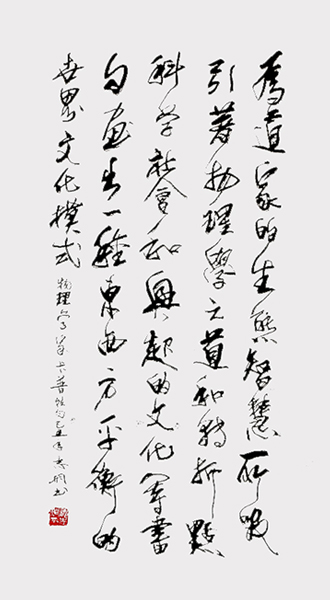 為道家的生態智慧所吸
引著物理學之道和轉折點
科学社會和興起的文化等書
勾画出一種東西方平衡的
世界文化模式
物理学家卡普拉句